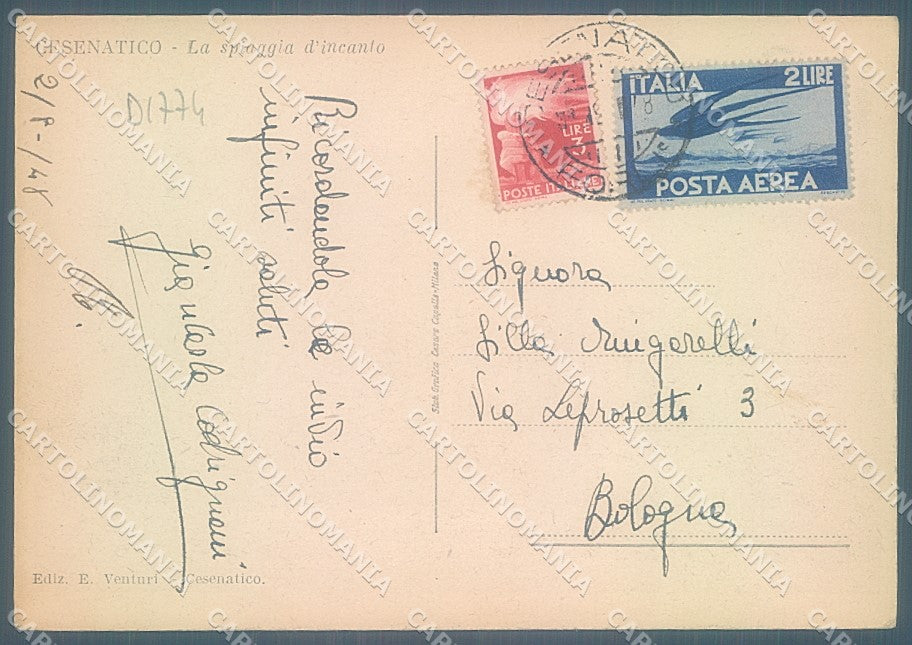 CESENATICO - La spiaggia d'incanto
D1774
Ricordandola le invio
infiniti saluti
Giancarla Codrignani
Ediz. E. Venturi - Cesenatico.
Stab. Grafico Cesare Capello - Milano
LIRE
3
POSTE ITALIANE
ITALIA 2 LIRE
POSTA AEREA
CESENATICO
Signora
Lilla Mingarelli
Via Leprosetti 3
Bologna
CARTOLINOMANIA